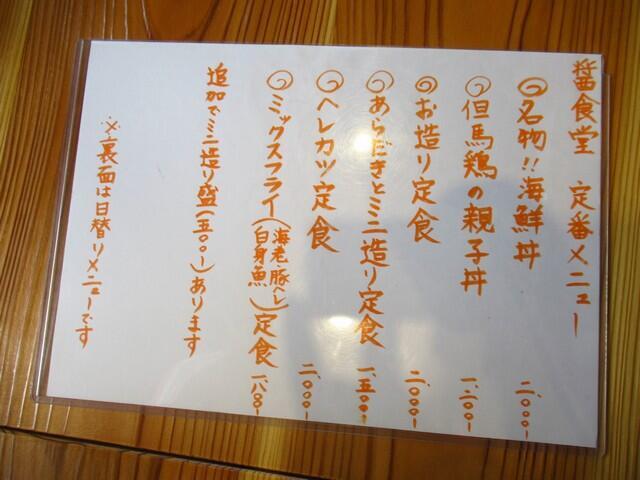 醤食堂 定番メニュー
名物!!海鮮丼 二、〇〇〇-
但馬鶏の親子丼 一、二〇〇-
お造り定食 二、〇〇〇-
あらだきとミニ造り定食 一、五〇〇-
ヘレカツ定食 二、〇〇〇-
ミックスフライ(海老・豚ヘレ 白身魚)定食 一、八〇〇-
追加でミニ造り盛(五〇〇-)あります
※裏面は日替りメニューです